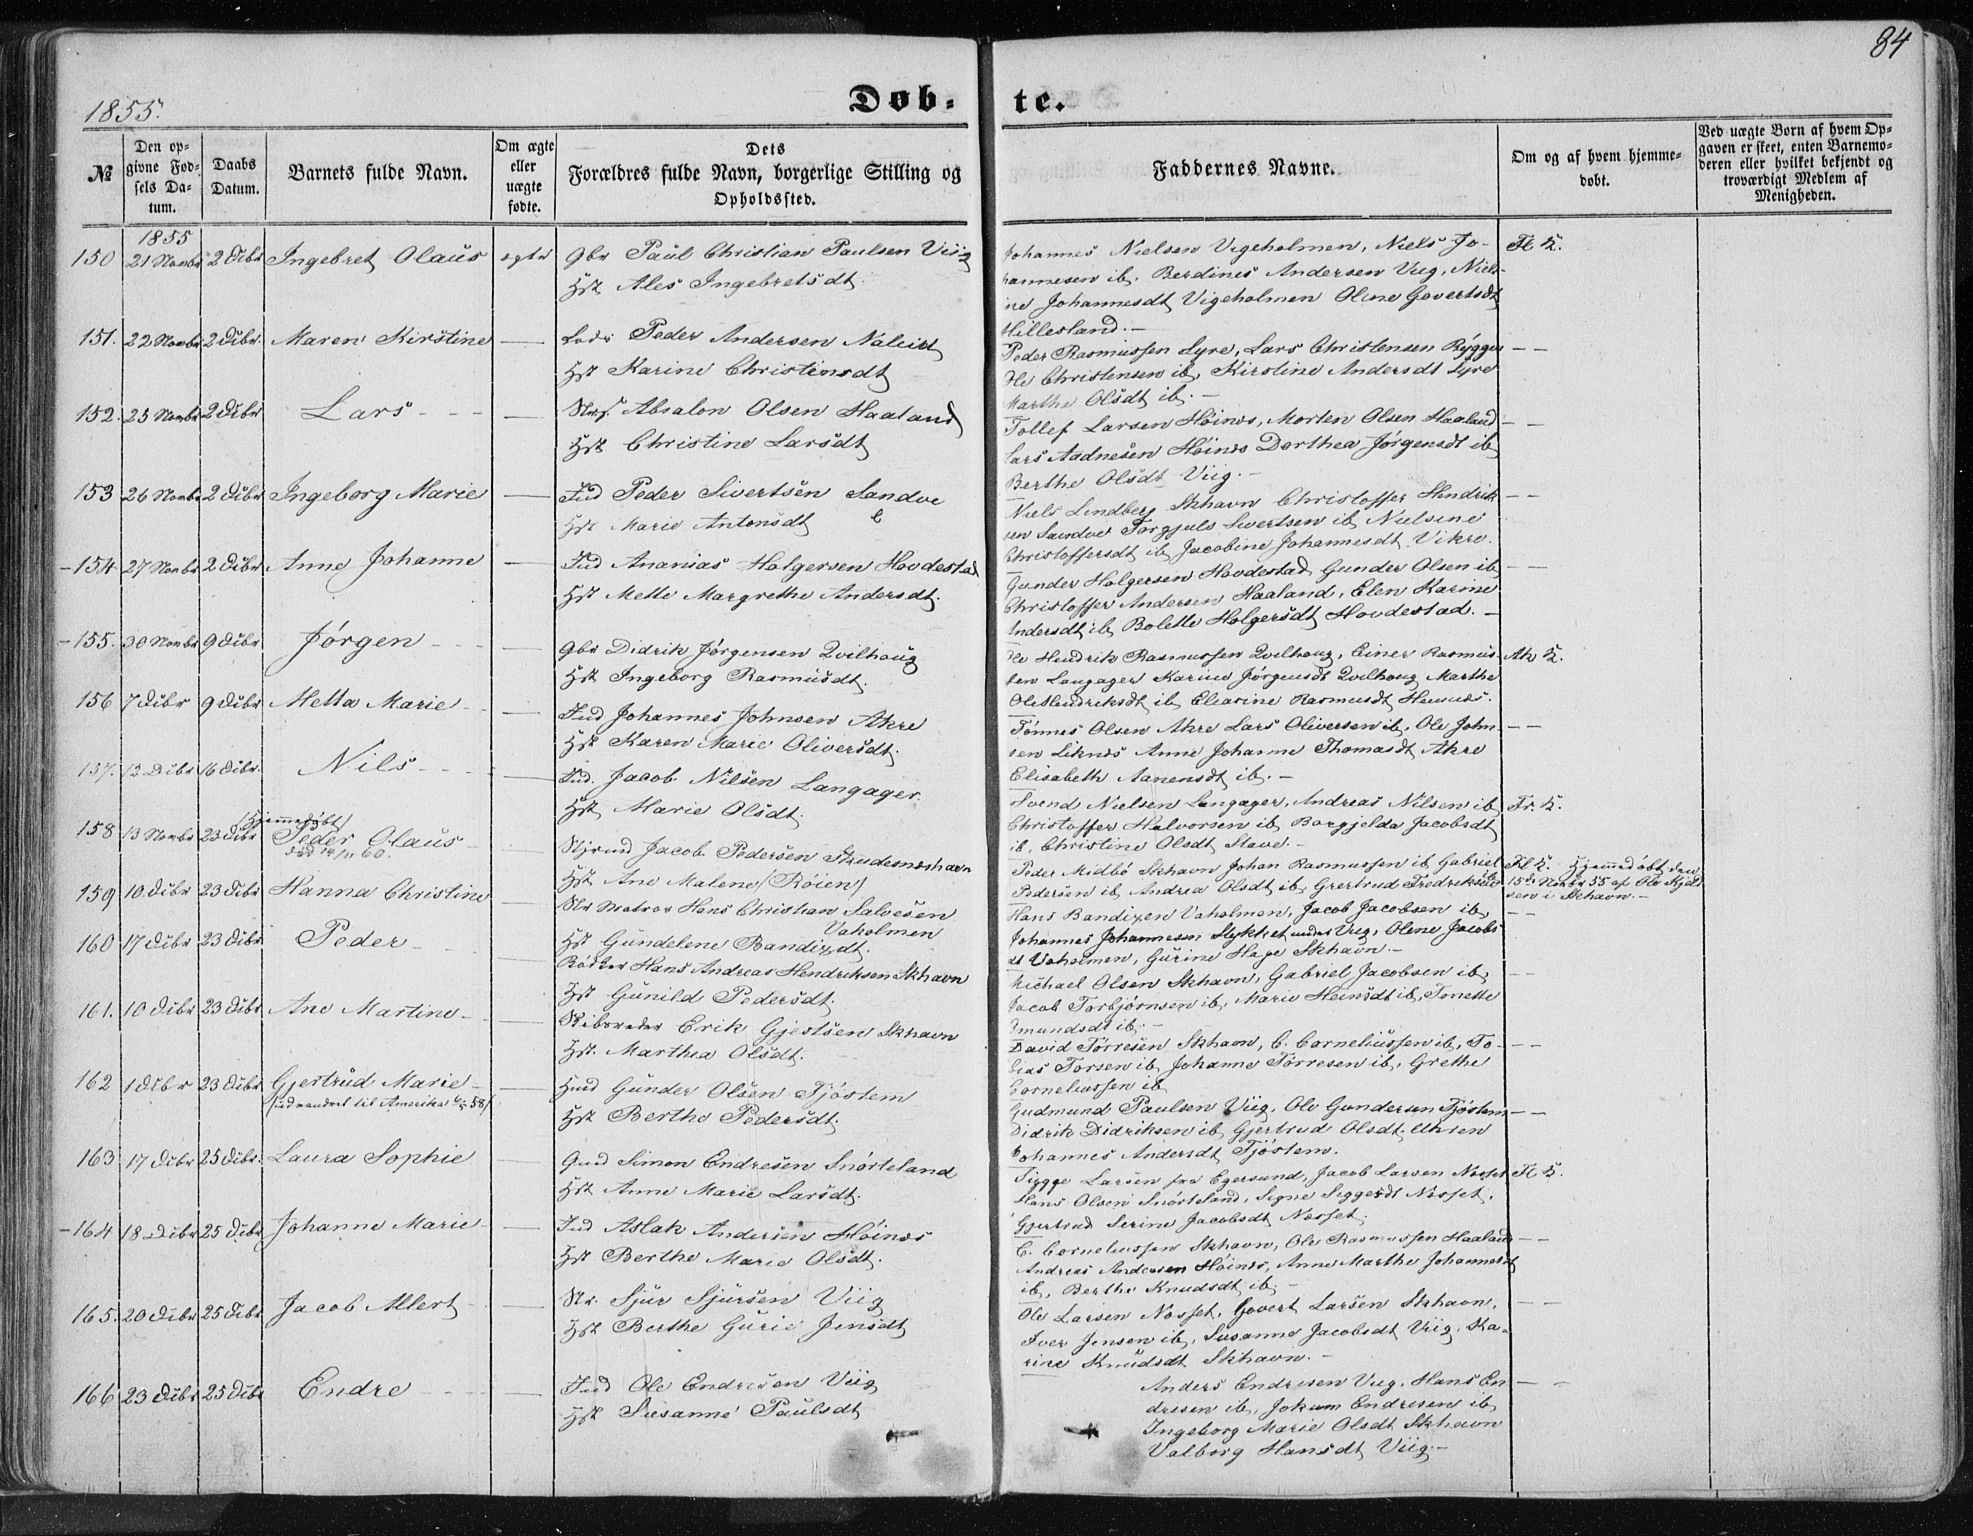 84
1855.
Døb-
te.
№
Den op-
givne Fød-
sels Da-
tum.
Daabs
Datum.
Barnets fulde Navn.
Om ægte
eller
uægte
fødte.
Dets
Forældres fulde Navn, borgerlige Stilling og
Opholdssted.
Faddernes Navne.
Om og af hvem hjemme-
døbt.
Ved uægte Børn af hvem Op-
gaven er skeet, enten Barnemo-
deren eller hvilket bekjendt og
troværdigt Medlem af
Menigheden.
1855
150 21 Novbr 2 Dcbr Ingebret Olaus ægte Gbr Paul Christian Paulsen Viig
Hst Ales Ingebretsdt.
Johannes Nielsen Vigeholmen, Niels Jo- Fl K.
hannesen ib, Berdines Andersen Viig, Niel-
ine Johannesdt Vigeholmen Olene Govertsdt
Hillesland.—
151. 22 Novbr 2 Dcbr. Maren Kirstine — Lods Peder Andersen
Hst Karine Christensdt
Peder Rasmussen Lyre, Lars Christensen Rygge — —
Ole Christensen ib, Kirstine Andersdt Lyre
Marthe Olsdt ib.—
152. 25 Novbr 2 Dcbr Lars — Absalon Olsen Haaland
Hst Christine Larsdt
Tollef Larsen Høines, Morten Olsen Haaland — —
Lars Aadnesen Høines Dorthea Jørgensdt ib
Berthe Olsdt Viig.—
153 26 Novbr 2 Dcbr Ingeborg Marie — Ind Peder Sivertsen Sandve
Hst Marie Antonsdt
Niels Lindberg Skhavn Christoffer Hendrik- — —
sen Sandve Torgjuls Sivertsen ib Nielsine
Christoffersdt ib Jacobine Johannesdt Vikre.
-154 27 Novbr 2 Dcbr Anne Johanne — Ind Ananias Holgersen Hovdestad
Hst Mette Margrethe Andersdt.
Gunder Holgersen Hovdestad Gunder Olsen ib — —
Christoffer Andersen Haaland, Elen Karine
Andersdt ib Bolette Holgersdt Hovdestad.—
-155. 30 Novbr 9 Dcbr Jørgen — Gbr Didrik Jørgensen Qvilhoug
Hst Ingeborg Rasmusdt.
Ole Hendrik Rasmussen Qvilhoug, Einer Rasmus- Ak K.
sen Langager Karine Jørgensdt Qvilhoug Marthe
Ole Hendriksdt ib Elearine Rasmusdt
156 7 Dcbr 9 Dcbr Metta Marie — Ind Johannes Johnsen Akre
Hst Karen Marie Oliversdt.
Tønnes Olsen Akre Lars Oliversen ib, Ole John- — —
sen Liknes Anne Johanne Thomasdt Akre
Elisabeth Aanensdt ib.—
157. 13 Dcbr 16 Dcbr. Nils — Ind. Jacob Nilsen Langager.
Hst Marie Olsdt.
Svend Nielsen Langager, Andreas Nilsen ib Fr. K.
Christoffer Halvorsen ib Borgjelda Jacobsdt
ib, Christine Olsdt Stave.—
(Hjemmedøbt)
158 13 Novbr 23 Dcbr Peder Olaus — Styrmd Jacob Pedersen Skudesneshavn
død 14/11 60.
Hst Ane Malene (Røien)
Peder Midbø Skhavn Johan Rasmussen ib Gabriel Fl K. Hjemmedøbt den
Pedersen ib Andrea Olsdt ib, Gjertrud Fredriksdt 15de Novbr 55 af Ole Kjeld-
sen i Skhavn.—
159 10 Dcbr 23 Dcbr Hanna Christine — Matros Hans Christian Salvesen
Vaholmen
Hst Gundelene Bandizdt.
Hans Bandizen Vaholmen, Jacob Jacobsen ib, — —
Johannes Johannesen Stykket under Viig, Olene Jacobs
dt Vaholmen, Gurine Hage Skhavn.—
160 17 Dcbr 23 Dcbr Peder — Bødker Hans Andreas Hendriksen Skhavn
Hst Gunild Pedersdt.
Michael Olsen Skhavn, Gabriel Jacobsen ib, — —
Jacob Torbjørnsen ib, Marie Heinsdt ib, Tonette
Omundsdt ib.—
161. 10 Dcbr 23 Dcbr Ane Martine — Skibsreder Erik Gjestsen Skhavn
Hst. Marthea Olsdt.
David Tørresen Skhavn, C. Corneliussen ib, To- — —
bias Torsen ib, Johanne Tørresen ib, Grethe
Corneliussen ib
162 1 Dcbr 23 Dcbr Gjertrud Marie — Hmd Gunder Olsen Tjøstem
(udvandret til Amerika 58)
Hst Berthe Pedersdt.
Gudmund Paulsen Viig, Ole Gundersen Tjøstem — —
Didrik Didriksen ib Gjertrud Olsdt
Johannes Andersdt Tjøstem.
163 17 Dcbr 25 Dcbr. Laura Sophie — Simon Endresen Snørteland
Hst Anne Marie Larsdt.
Sigge Larsen fra Egersund, Jacob Larsen Nosset Fl K.
Hans Olsen Snørteland, Signe Siggesdt Nosset.
Gjertrud Serine Jacobsdt Nosset.
-164 18 Dcbr 25 Dcbr Johanne Marie — Ind Aslak Andersen Høines
Hst Berthe Marie Olsdt.
C. Corneliussen Skhavn, Ole Rasmussen Haaland — —
Andreas Andersen Høines, Anne Marthe Johannesdt
ib, Berthe Knudsdt ib.—
165. 20 Dcbr 25 Dcbr Jacob Allert — Str. Sjur Sjursen Viig
Hst Berthe Gurie Jensdt
Ole Larsen Nosset, Govert Larsen Skhavn, — —
Iver Jensen ib, Susanne Jacobsdt Viig, Ka-
rine Knudsdt Skhavn.—
166 23 Dcbr 25 Dcbr Endre — Ind Ole Endresen Viig
Hst Susanne Paulsdt
Anders Endresen Viig, Hans En- — —
dresen ib, Jokum Endresen ib
Ingeborg Marie Olsdt Skhavn
Valborg Hansdt Viig.—